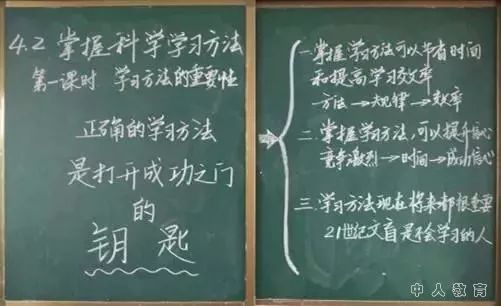 4.2 掌握科学学习方法
第一课时 学习方法的重要性
正确的学习方法
是打开成功之门
的
钥匙
一.掌握学习方法可以节省时间
和提高学习效率
方法→规律→效率
二.掌握学习方法,可以提升信心
竞争激烈→时间→成功信心
三.学习方法现在将来都很重要
21世纪文盲是不会学习的人
中人教育